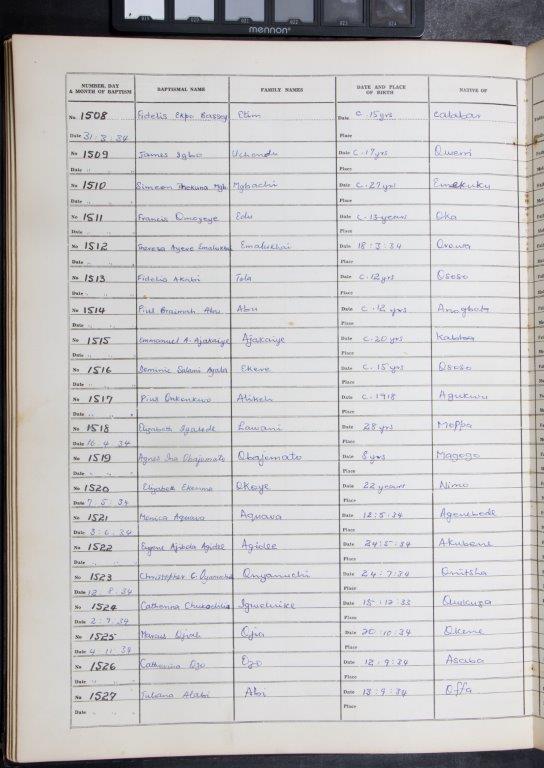 019 020 021 022 023 024
mennon
NUMBER, DAY & MONTH OF BAPTISM BAPTISMAL NAME FAMILY NAMES DATE AND PLACE OF BIRTH NATIVE OF
No 1508 Fidelis Ekpo Bassey Etim Date C. 15 yrs Calabar
Date 31. 3. 34 Place
No 1509 James Igbo Uchendu Date C. 17 yrs Owerri
Date " " " Place
No 1510 Simeon Mgbachi Date C. 27 yrs Emekuku
Date " " " Place
No 1511 Francis Omozeye Edu Date C. 13 years Oka
Date " " " Place
No 1512 Theresa Ayeve Emalukhai Emalukhai Date 18. 3. 34 Orowa
Date " " " Place
No 1513 Fidelis Akabi Tola Date C. 12 yrs Ososo
Date " " " Place
No 1514 Pius Braimah Abu Abu Date C. 12 yrs
Date " " " Place
No 1515 Emmanuel A. Ajakaiye Ajakaiye Date C. 20 yrs Kabba
Date " " " Place
No 1516 Dominic Salami Ekere Date C. 15 yrs Ososo
Date " " " Place
No 1517 Pius Onkonkwo Date C. 1918 Agukwu
Date " " " Place
No 1518 Elizabeth Lawani Date 28 yrs Moppa
Date 16. 4. 34 Place
No 1519 Agnes Ina Obajemato Obajemato Date 8 yrs Magogo
Date " " " Place
No 1520 Elizabeth Ekemma Okoye Date 22 years Nimo
Date 7. 5. 34 Place
No 1521 Monica Aguava Aguava Date 12 : 5 : 34 Agenebode
Date 3 : 6. 34 Place
No 1522 Eugene Agidee Date 24 : 5 : 34
Date " " " Place
No 1523 Christopher C. Onyanuchi Date 24 : 7 : 34 Onitsha
Date 12. 8. 34 Place
No 1524 Catherina Igwelnike Date 15 : 12 : 33
Date 2 : 9. 34 Place
No 1525 Marcus Ojiah Ojia Date 20 : 10 : 34 Okene
Date 4. 11. 34 Place
No 1526 Catherina Ozo Ozo Date 12. 9 : 34 Asaba
Date " " " Place
No 1527 Juliana Alabi Abi Date 13 : 9 : 34 Offa
Date " " " Place